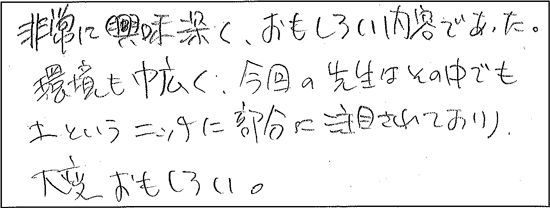 非常に興味深く、おもしろい内容であった。
環境も巾広く、今回の先生はその中でも
土というニッチに部分に注目されており、
大変おもしろい。